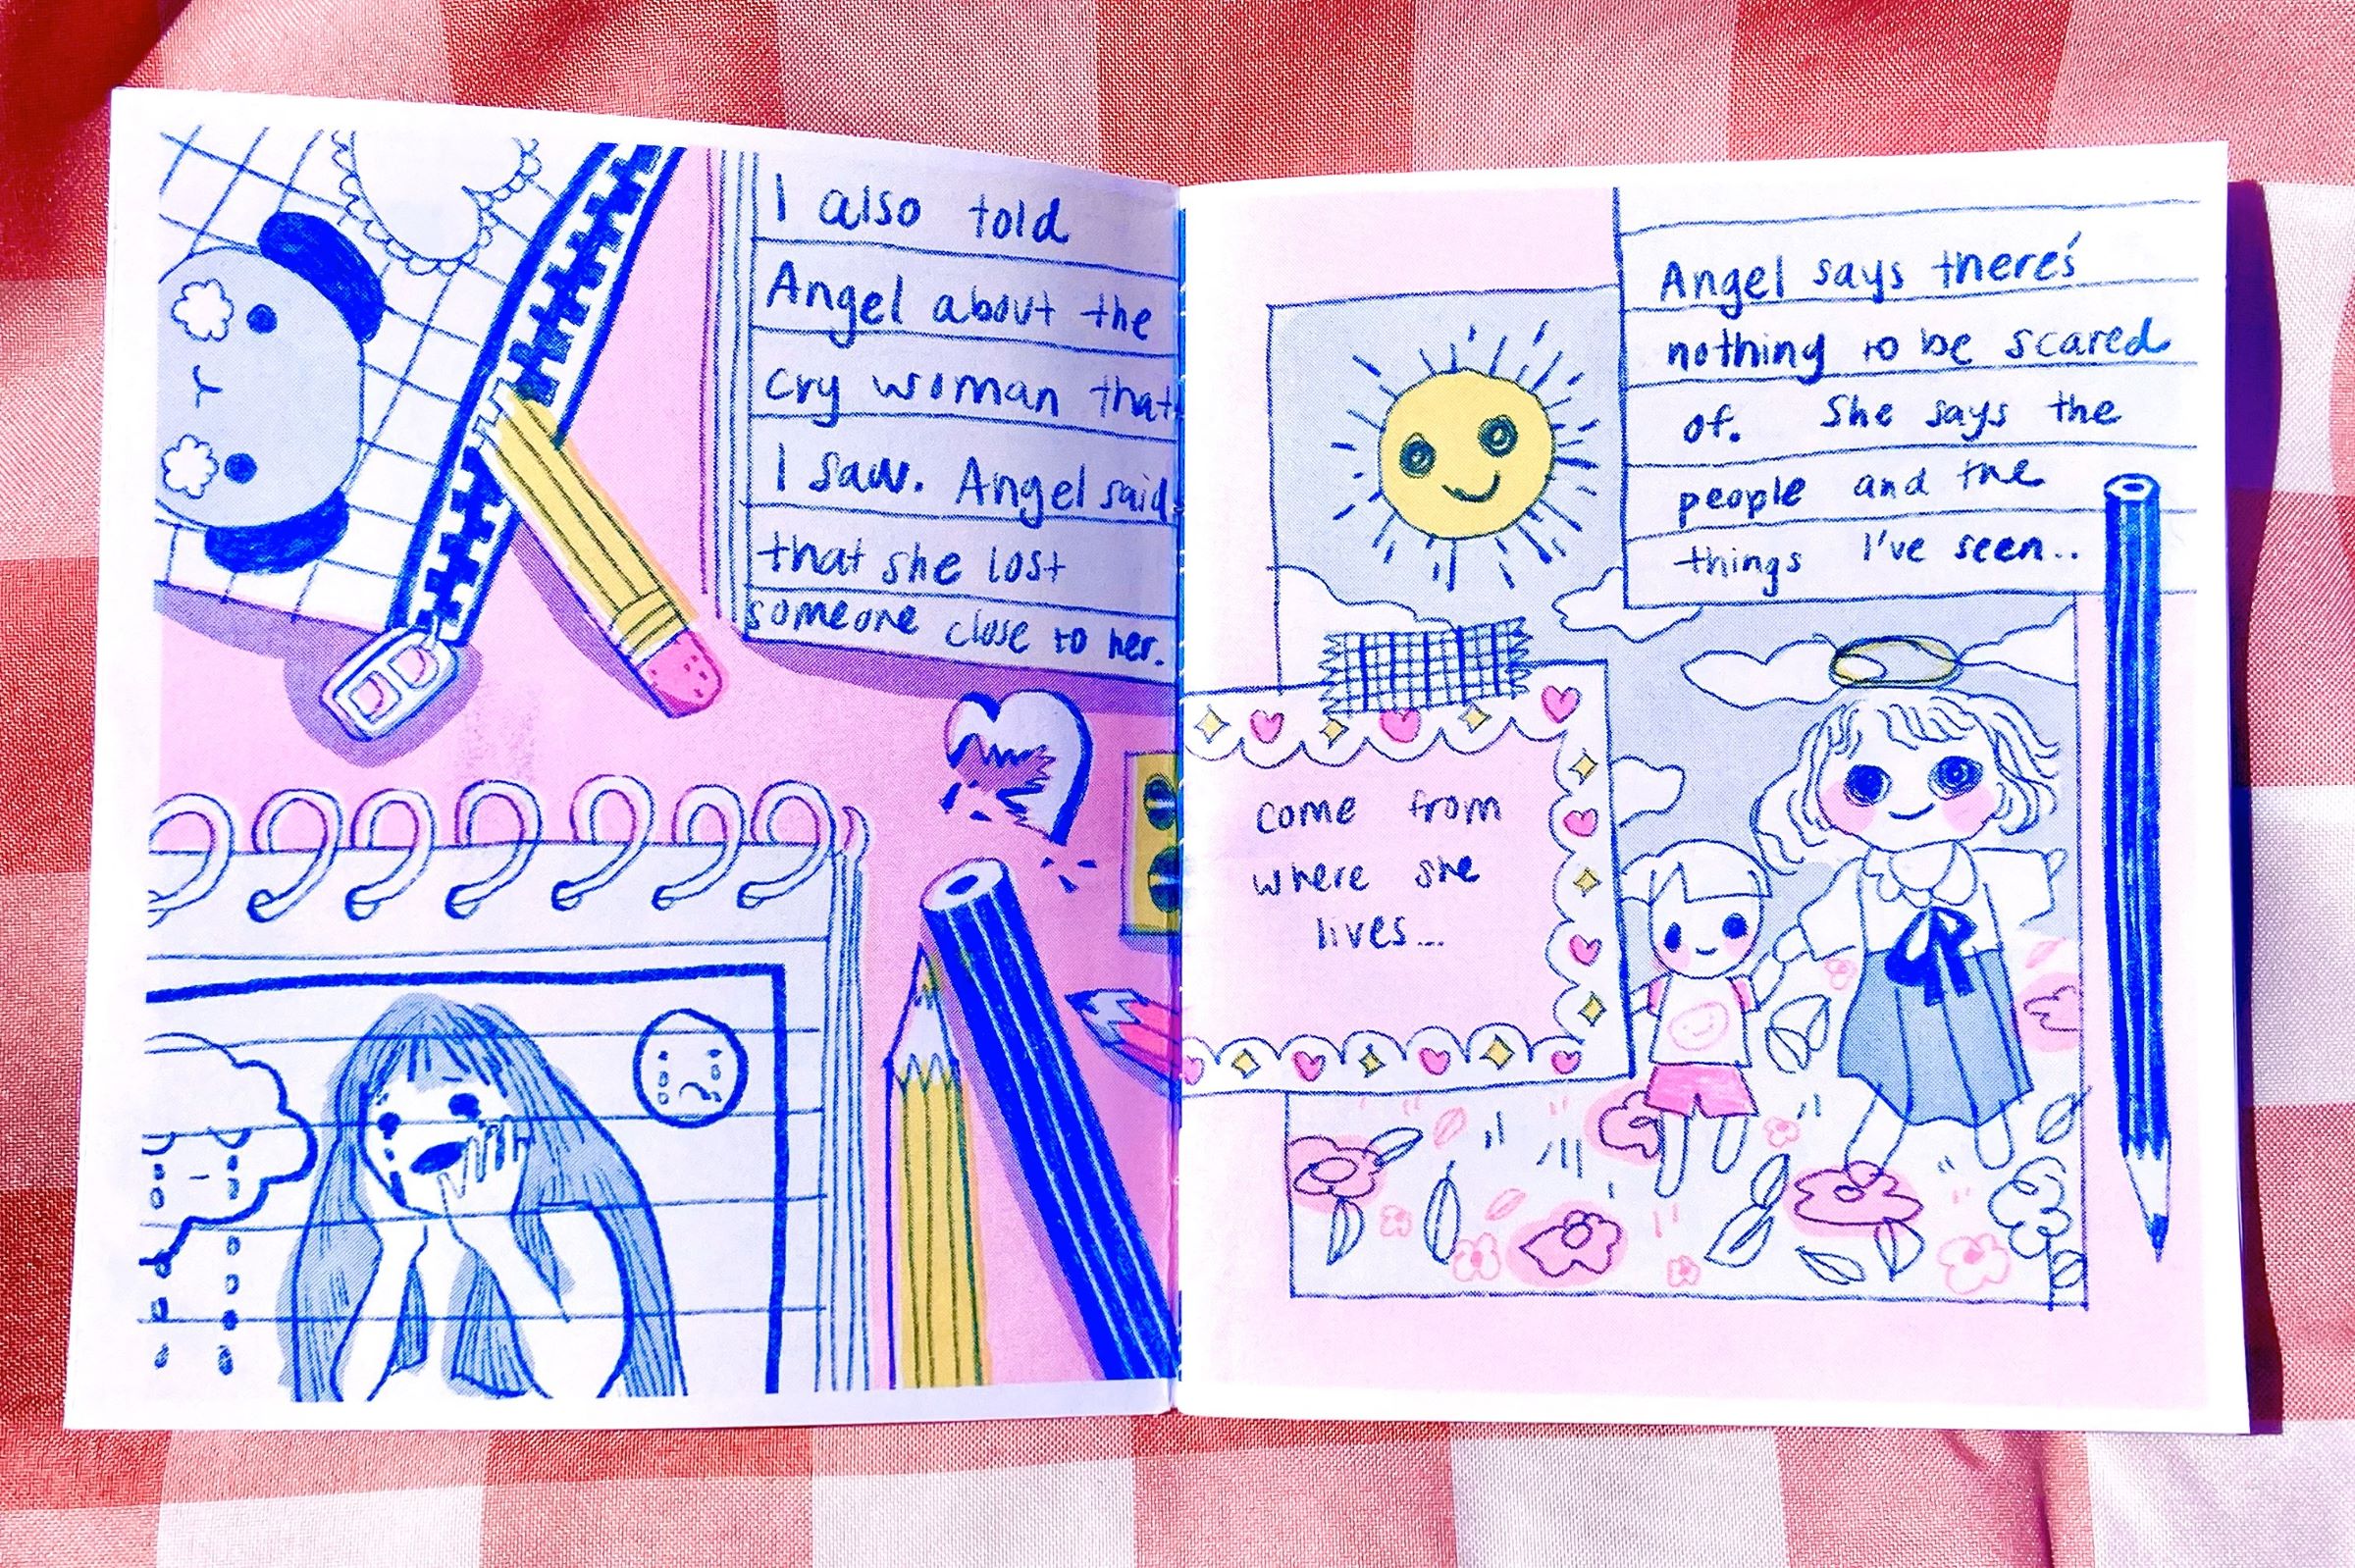 I also told
Angel about the
cry woman that
I saw. Angel said
that she lost
someone close to her.
Angel says there's
nothing to be scared
of. She says the
people and the
things I've seen..
come from
where she
lives...